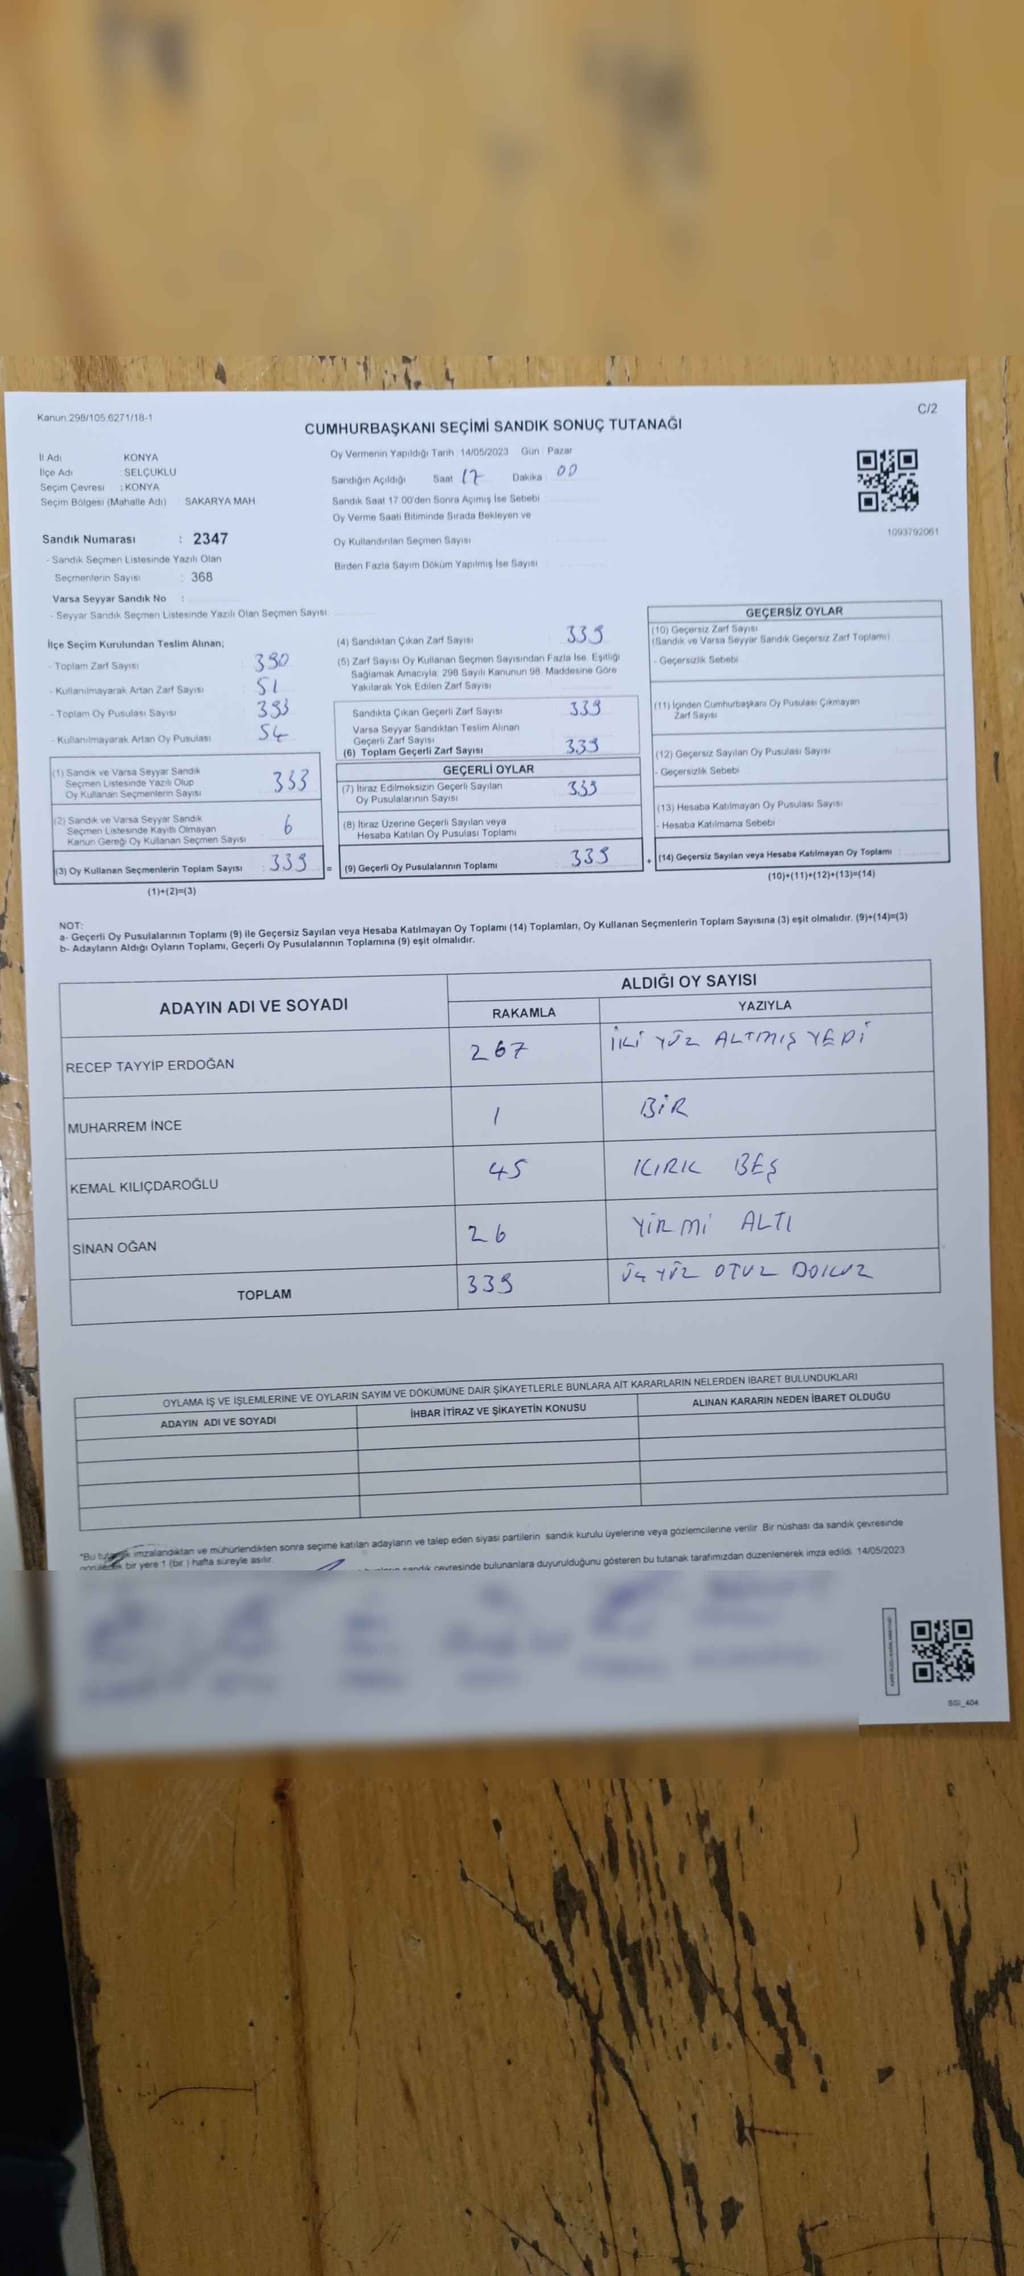 Kanun 298/105 6271/18-1
C/2
CUMHURBAŞKANI SEÇİMİ SANDIK SONUÇ TUTANAĞI
İl Adı KONYA
İlçe Adı : SELÇUKLU
Seçim Çevresi : KONYA
Seçim Bölgesi (Mahalle Adı) SAKARYA MAH
Oy Vermenin Yapıldığı Tarih : 14/05/2023 Gün : Pazar
Sandığın Açıldığı Saat 17 Dakika 00
Sandık Saat 17.00'den Sonra Açımış İse Sebebi
Oy Verme Saati Bitiminde Sırada Bekleyen ve
Oy Kullandırılan Seçmen Sayısı
Birden Fazla Sayım Döküm Yapılmış İse Sayısı
1093792061
Sandık Numarası : 2347
- Sandık Seçmen Listesinde Yazılı Olan
Seçmenlerin Sayısı : 368
Varsa Seyyar Sandık No :
- Seyyar Sandık Seçmen Listesinde Yazılı Olan Seçmen Sayısı
İlçe Seçim Kurulundan Teslim Alınan;
- Toplam Zarf Sayısı : 390
- Kullanılmayarak Artan Zarf Sayısı : 51
- Toplam Oy Pusulası Sayısı : 393
- Kullanılmayarak Artan Oy Pusulası : 54
(1) Sandık ve Varsa Seyyar Sandık
Seçmen Listesinde Yazılı Olup
Oy Kullanan Seçmenlerin Sayısı : 333
(2) Sandık ve Varsa Seyyar Sandık
Seçmen Listesinde Kayıtlı Olmayan
Kanun Gereği Oy Kullanan Seçmen Sayısı : 6
(3) Oy Kullanan Seçmenlerin Toplam Sayısı : 339 =
(1)+(2)=(3)
(4) Sandıktan Çıkan Zarf Sayısı 339
(5) Zarf Sayısı Oy Kullanan Seçmen Sayısından Fazla İse, Eşitliği
Sağlamak Amacıyla; 298 Sayılı Kanunun 98. Maddesine Göre
Yakılarak Yok Edilen Zarf Sayısı
Sandıkta Çıkan Geçerli Zarf Sayısı 339
Varsa Seyyar Sandıktan Teslim Alınan
Geçerli Zarf Sayısı
(6) Toplam Geçerli Zarf Sayısı 339
GEÇERLİ OYLAR
(7) İtiraz Edilmeksizin Geçerli Sayılan
Oy Pusulalarının Sayısı 339
(8) İtiraz Üzerine Geçerli Sayılan veya
Hesaba Katılan Oy Pusulası Toplamı
(9) Geçerli Oy Pusulalarının Toplamı 339 +
GEÇERSİZ OYLAR
(10) Geçersiz Zarf Sayısı
(Sandık ve Varsa Seyyar Sandık Geçersiz Zarf Toplamı)
- Geçersizlik Sebebi
(11) İçinden Cumhurbaşkanı Oy Pusulası Çıkmayan
Zarf Sayısı
(12) Geçersiz Sayılan Oy Pusulası Sayısı
- Geçersizlik Sebebi
(13) Hesaba Katılmayan Oy Pusulası Sayısı
- Hesaba Katılmama Sebebi
(14) Geçersiz Sayılan veya Hesaba Katılmayan Oy Toplamı
(10)+(11)+(12)+(13)=(14)
NOT:
a- Geçerli Oy Pusulalarının Toplamı (9) ile Geçersiz Sayılan veya Hesaba Katılmayan Oy Toplamı (14) Toplamları, Oy Kullanan Seçmenlerin Toplam Sayısına (3) eşit olmalıdır. (9)+(14)=(3)
b- Adayların Aldığı Oyların Toplamı, Geçerli Oy Pusulalarının Toplamına (9) eşit olmalıdır.
ADAYIN ADI VE SOYADI
ALDIĞI OY SAYISI
RAKAMLA YAZIYLA
RECEP TAYYİP ERDOĞAN 267 İKİ YÜZ ALTMIŞ YEDİ
MUHARREM İNCE 1 BİR
KEMAL KILIÇDAROĞLU 45 KIRK BEŞ
SİNAN OĞAN 26 YİRMİ ALTI
TOPLAM 339 ÜÇ YÜZ OTUZ DOKUZ
OYLAMA İŞ VE İŞLEMLERİNE VE OYLARIN SAYIM VE DÖKÜMÜNE DAİR ŞİKAYETLERLE BUNLARA AİT KARARLARIN NELERDEN İBARET BULUNDUKLARI
ADAYIN ADI VE SOYADI İHBAR İTİRAZ VE ŞİKAYETİN KONUSU ALINAN KARARIN NEDEN İBARET OLDUĞU
"Bu tutanak imzalandıktan ve mühürlendikten sonra seçime katılan adayların ve talep eden siyasi partilerin sandık kurulu üyelerine veya gözlemcilerine verilir. Bir nüshası da sandık çevresinde
bir yere 1 (bir) hafta süreyle asılır.
sandık çevresinde bulunanlara duyurulduğunu gösteren bu tutanak tarafımızdan düzenlenerek imza edildi. 14/05/2023
SGI_404